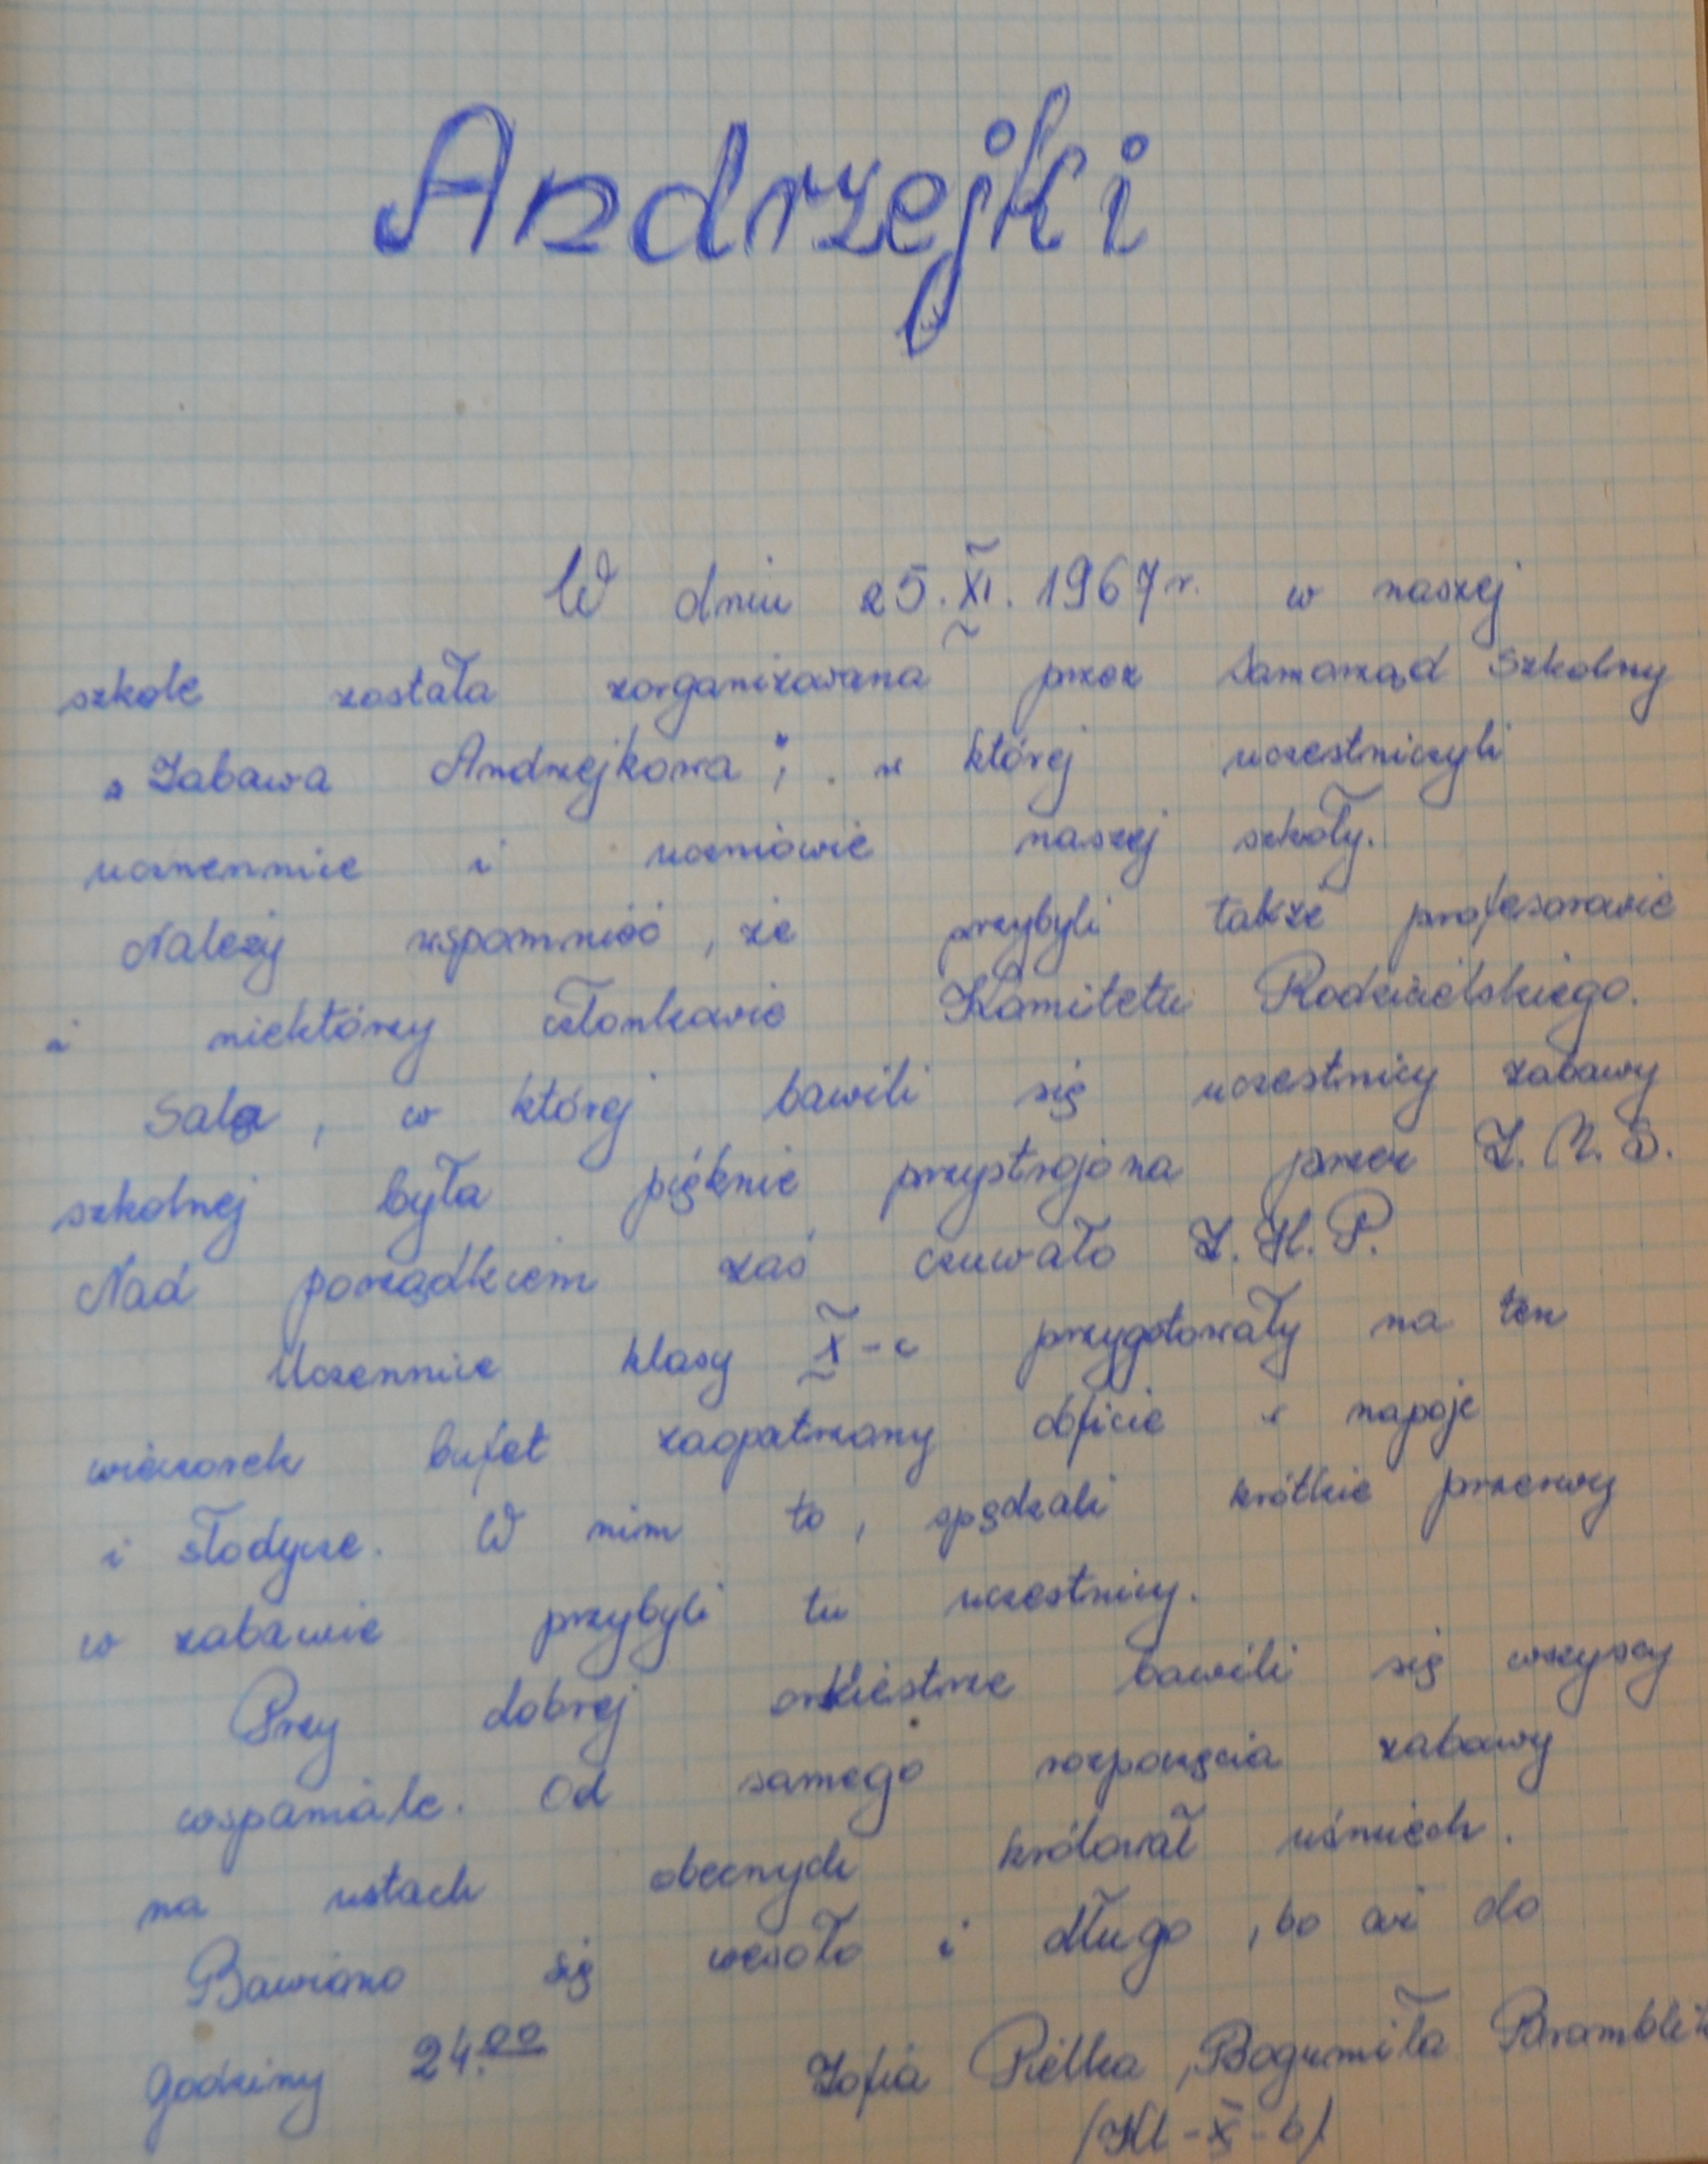 Andrzejki
W dniu 25.XI.1967r. w naszej
szkole została zorganizowana przez Samorząd Szkolny
"Zabawa Andrzejkowa", w której uczestniczyli
uczennice i uczniowie naszej szkoły.
Należy wspomnieć, że przybyli także profesorowie
i niektórzy członkowie Komitetu Rodzicielskiego.
Sala, w której bawili się uczestnicy zabawy
szkolnej była pięknie przystrojona przez Z.M.S.
Nad porządkiem zaś czuwało Z.H.P.
Uczennice klasy X-c przygotowały na ten
wieczorek bufet zaopatrzony obficie w napoje
i słodycze. W nim to, spędzali krótkie przerwy
w zabawie przybyli tu uczestnicy.
Przy dobrej orkiestrze bawili się wszyscy
wspaniale. Od samego rozpoczęcia zabawy
na ustach obecnych królował uśmiech.
Bawiono się wesoło i długo, bo aż do
godziny 24.00
Zofia Pielka, Bogumiła
(Kl-X-b)